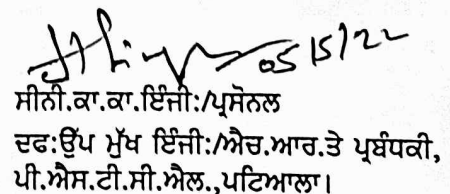 05/5/22
ਸੀਨੀ.ਕਾ.ਕਾ.ਇੰਜੀ:/ਪ੍ਰਸੋਨਲ
ਦਫ:ਉੱਪ ਮੁੱਖ ਇੰਜੀ:/ਐਚ.ਆਰ.ਤੇ ਪ੍ਰਬੰਧਕੀ,
ਪੀ.ਐਸ.ਟੀ.ਸੀ.ਐਲ.,ਪਟਿਆਲਾ।